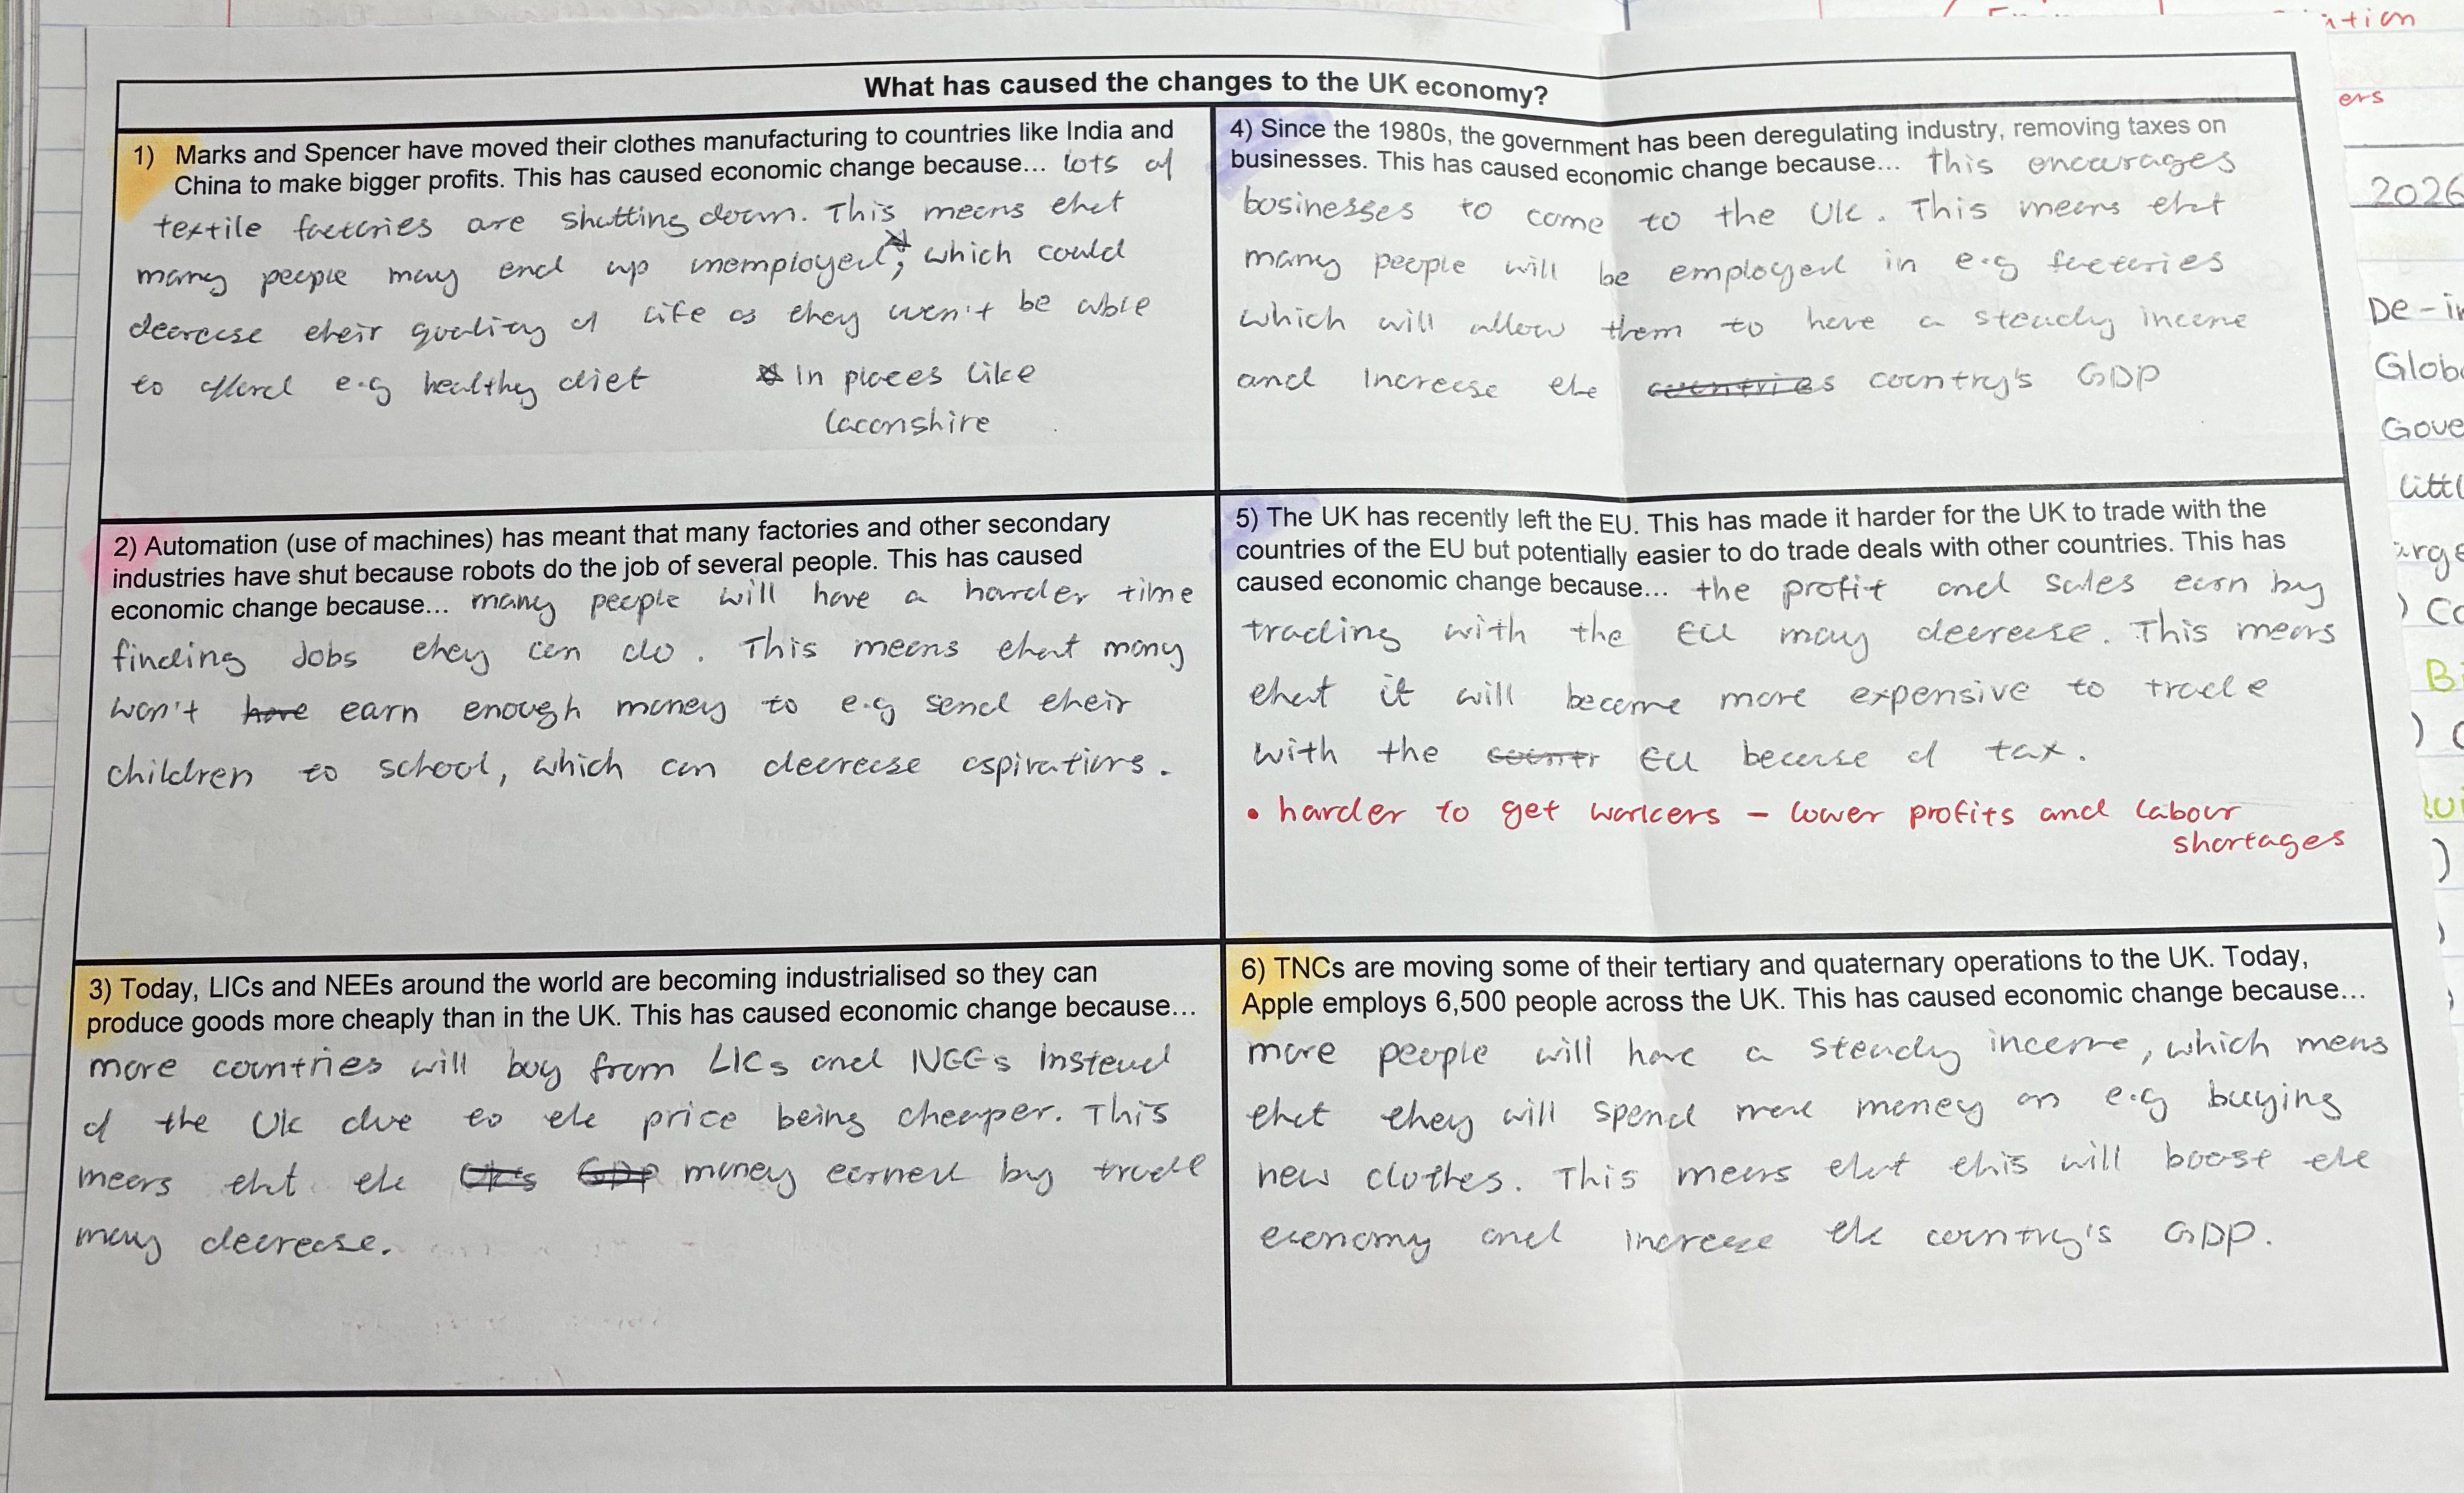 What has caused the changes to the UK economy?
1) Marks and Spencer have moved their clothes manufacturing to countries like India and
China to make bigger profits. This has caused economic change because... lots of
textile factories are shutting down. This means that
many people may end up unemployed, which could
decrease their quality of life as they won't be able
to afford e.g healthy diet
In places like
Lacanshire
2) Automation (use of machines) has meant that many factories and other secondary
industries have shut because robots do the job of several people. This has caused
economic change because... many people will have a harder time
finding Jobs they can do. This means that many
won't have earn enough money to e.g send their
children to school, which can decrease aspirations.
3) Today, LICs and NEEs around the world are becoming industrialised so they can
produce goods more cheaply than in the UK. This has caused economic change because...
more countries will buy from LICs and NEEs instead
of the UK due to the price being cheaper. This
means that the UK's GDP money earned by trade
may decrease.
4) Since the 1980s, the government has been deregulating industry, removing taxes on
businesses. This has caused economic change because... this encourages
businesses to come to the UK. This means that
many people will be employed in e.g factories
which will allow them to have a steady income
and increase the countries country's GDP
5) The UK has recently left the EU. This has made it harder for the UK to trade with the
countries of the EU but potentially easier to do trade deals with other countries. This has
caused economic change because... the profit and sales earn by
trading with the EU may decrease. This means
that it will become more expensive to trade
with the countr EU because of tax.
• harder to get workers - lower profits and labour
shortages
6) TNCs are moving some of their tertiary and quaternary operations to the UK. Today,
Apple employs 6,500 people across the UK. This has caused economic change because...
more people will have a steady income, which means
that they will spend more money on e.g buying
new clothes. This means that this will boost the
economy and increase the country's GDP.
ers
2026
De-in
Glob
Gove
littl
arge
Bi